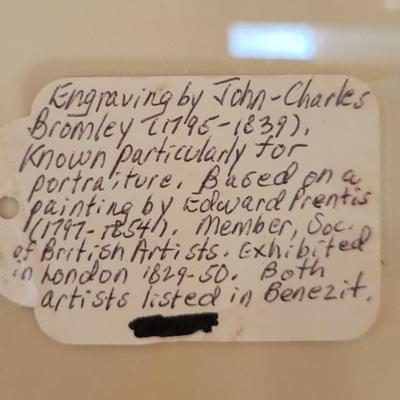 Engraving by John-Charles
Bromley (1795-1839).
Known particularly for
portraiture. Based on a
painting by Edward Prentis
(1797-1854). Member, Soc.
of British Artists. Exhibited
in London 1829-50. Both
artists listed in Benezit.